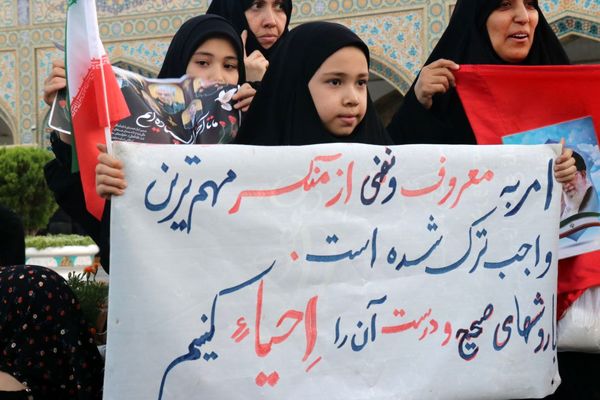 امر به معروف و نفی از منکر مهم ترین
واجب ترک شده است.
با روشهای صحیح و درست آن را اِحیاءِ کنیم